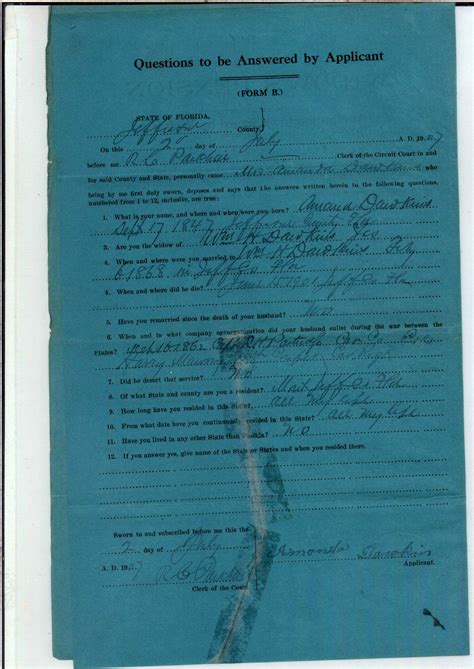 Questions to be Answered by Applicant
(FORM B.)
STATE OF FLORIDA,
Jefferson County
On this 2 day of July A. D. 190 7
before me R. C. Parkhill Clerk of the Circuit Court in and
for said County and State, personally came Mrs Amanda Dawkins who
being by me first duly sworn, deposes and says that the answers written herein to the following questions,
numbered from 1 to 12, inclusive, are true:
1. What is your name, and where and when were you born? Amanda Dawkins
Sept 17 184 Jefferson County Fla
3. Are you the widow of Wm H Dawkins Yes
4. When and where were you married to Wm H Dawkins
6 1868 in Jeff Co Fla
4. When and where did he die? June 14 1901 Jeff Co Fla
5. Have you remarried since the death of your husband? No
6. When and in what company and organization did your husband enlist during the war between the
States?
7. Did he desert that service? No
8. Of what State and county are you a resident? Jeff Co Fla
9. How long have you resided in this State? All my life
10. From what date have you continuously resided in this State? All my life
11. Have you lived in any other State than Florida? No
12. If you answer yes, give name of the State or States and when you resided there.
Sworn to and subscribed before me this the
2 day of July Amanda Dawkins
A. D. 190 7 Applicant.
R C Parkhill
Clerk of the Court